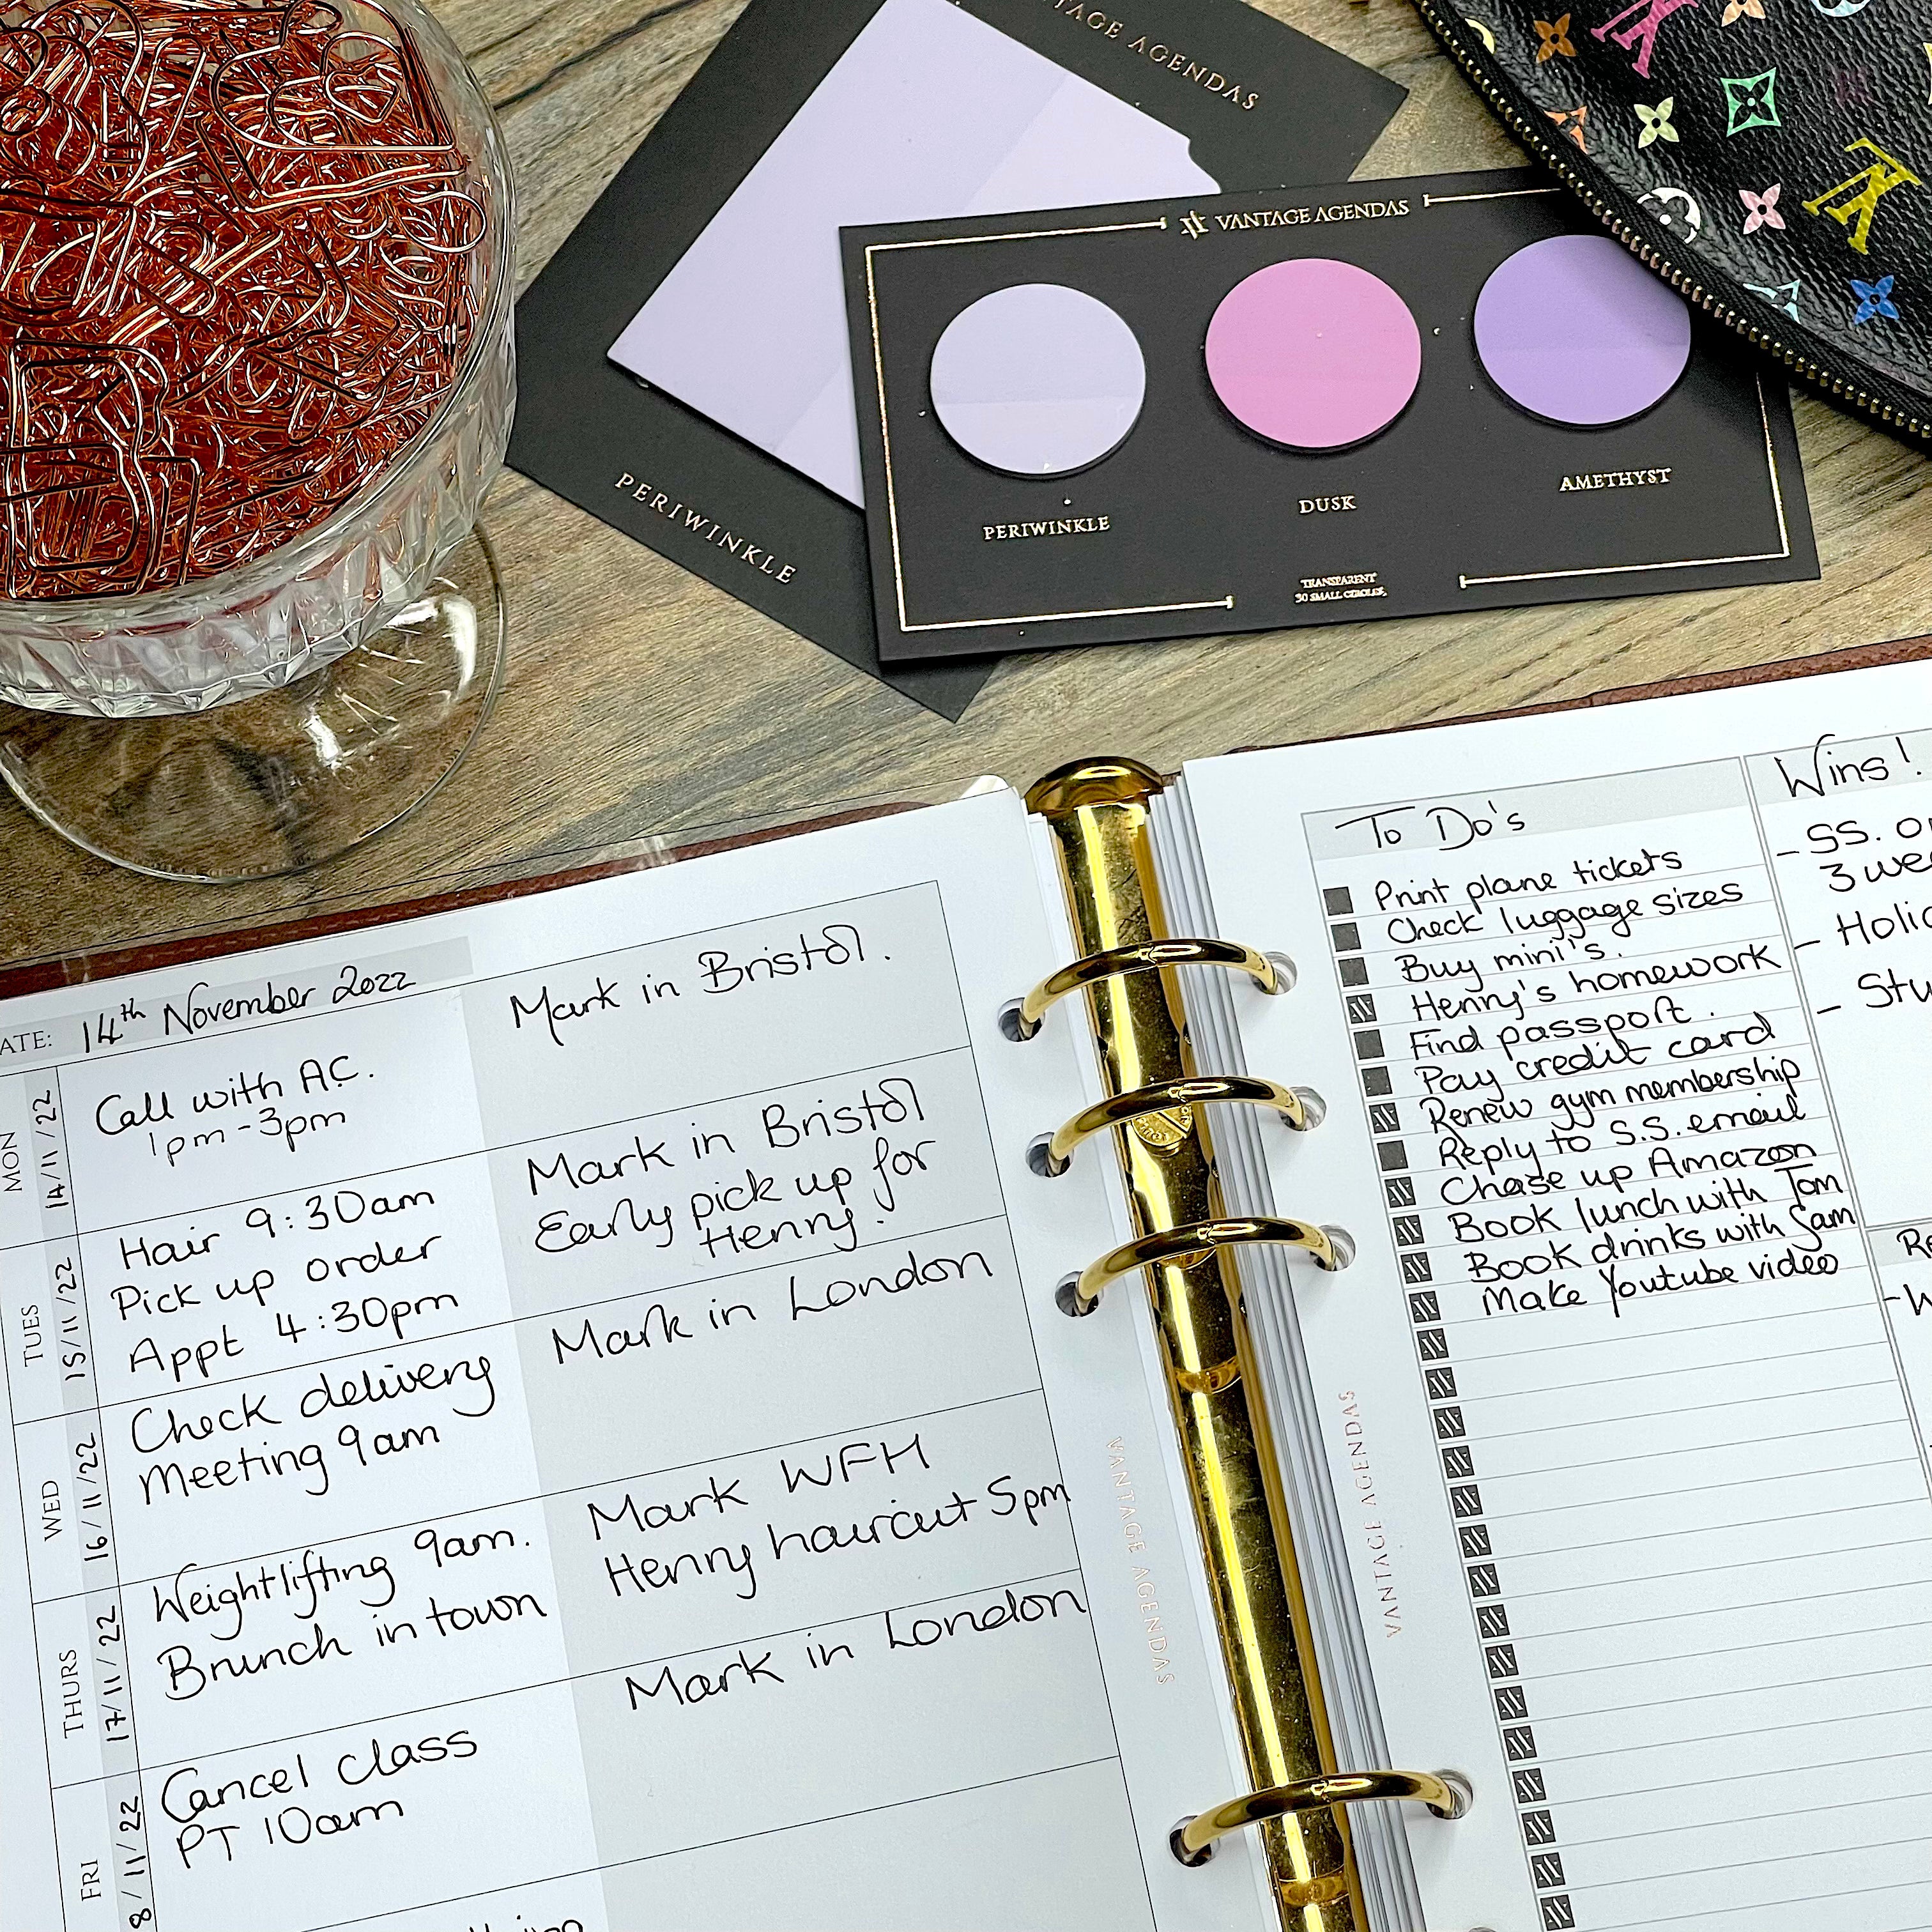 VANTAGE AGENDAS
PERIWINKLE
VANTAGE AGENDAS
PERIWINKLE
DUSK
AMETHYST
TRANSPARENT
30 SMALL CIRCLES
DATE: 14th November 2022
MON
14/11/22
Call with A.C.
1pm-3pm
Mark in Bristol.
TUES
15/11/22
Hair 9:30am
Pick up order
Appt 4:30pm
Mark in Bristol
Early pick up for
Henry.
WED
16/11/22
Check delivery
Meeting 9am
Mark in London
THURS
17/11/22
Weightlifting 9am.
Brunch in town
Mark WFH
Henry haircut 5pm
FRI
8/11/22
Cancel class
PT 10am
Mark in London
VANTAGE AGENDAS
VANTAGE AGENDAS
To Do's
Print plane tickets
Check luggage sizes
Buy mini's.
Henry's homework
Find passport.
Pay credit card
Renew gym membership
Reply to S.S. email
Chase up Amazon
Book lunch with Tom
Book drinks with Sam
Make Youtube video
Wins!
- SS.
3
-
-
-